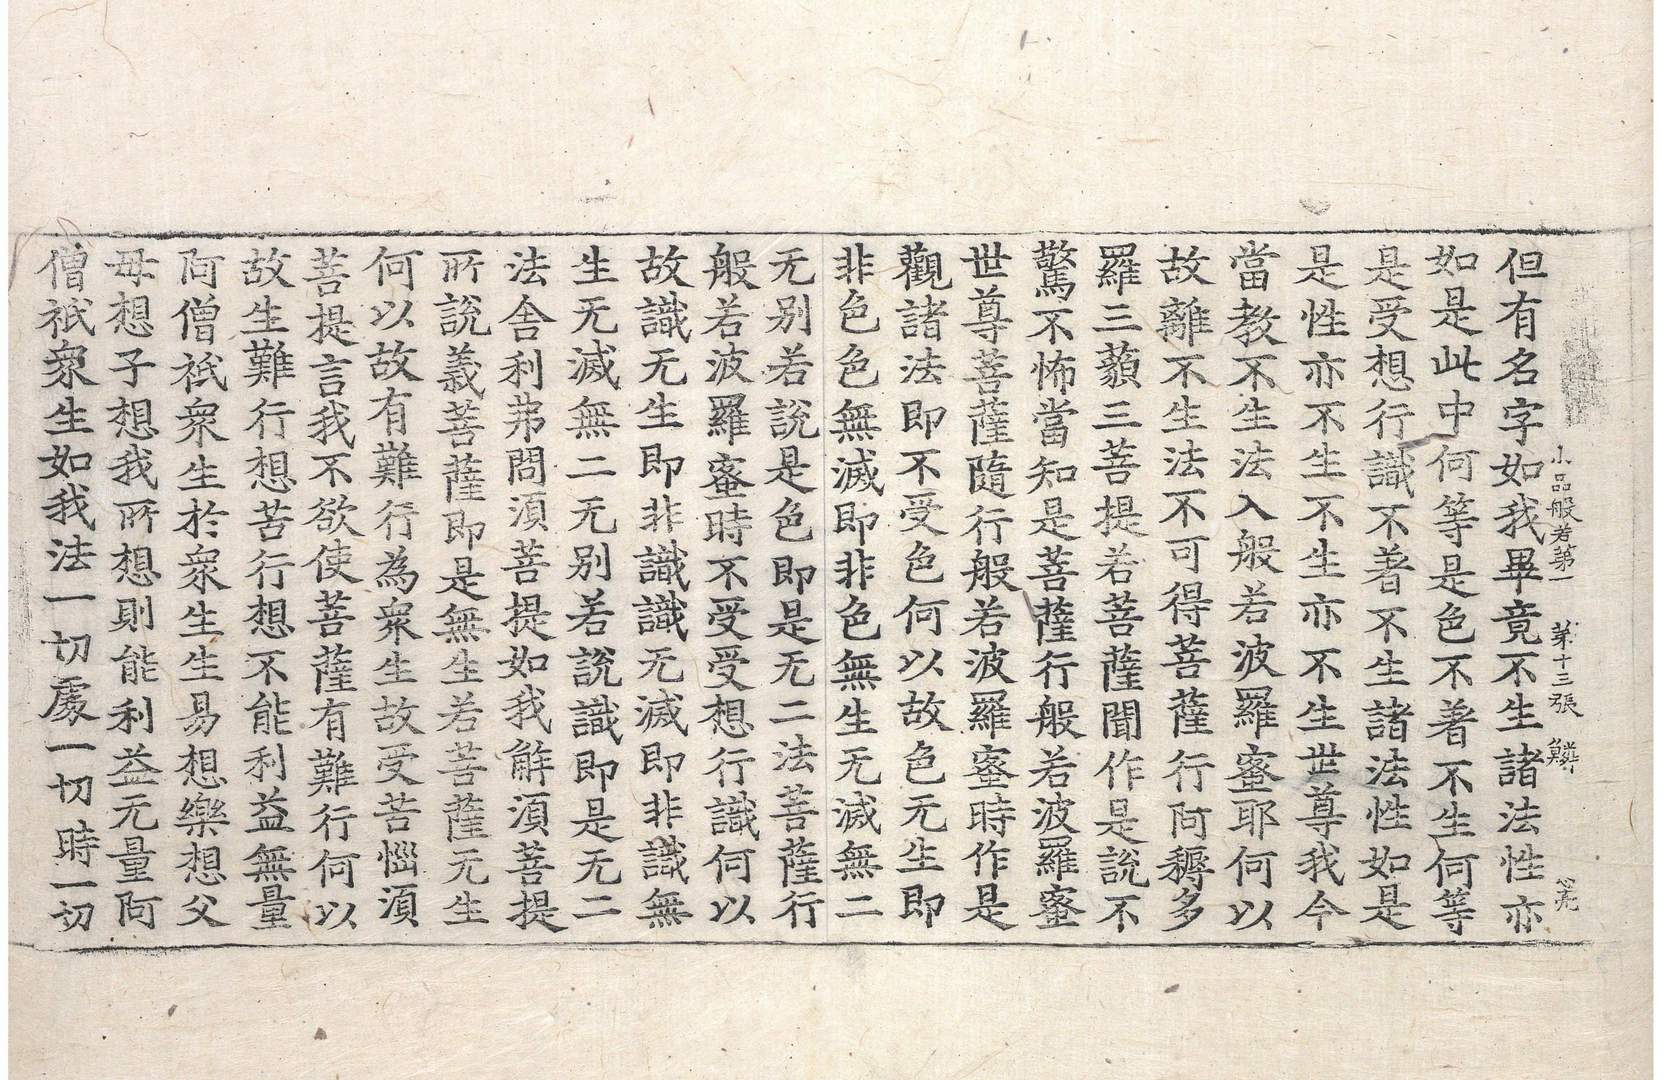 小品般若第一 第十三張 鱗
但有名字如我畢竟不生諸法性亦
如是此中何等是色不著不生何等
是受想行識不著不生諸法性如是
是性亦不生不生亦不生世尊我今
當教不生法入般若波羅蜜耶何以
故離不生法不可得菩薩行阿耨多
羅三藐三菩提若菩薩聞作是說不
驚不怖當知是菩薩行般若波羅蜜
世尊菩薩隨行般若波羅蜜時作是
觀諸法即不受色何以故色无生即
非色色無滅即非色無生无滅無二
无別若說是色即是无二法菩薩行
般若波羅蜜時不受受想行識何以
故識无生即非識識无滅即非識無
生无滅無二无別若說識即是无二
法舍利弗問須菩提如我解須菩提
所說義菩薩即是無生若菩薩无生
何以故有難行為衆生故受苦惱須
菩提言我不欲使菩薩有難行何以
故生難行想苦行想不能利益無量
阿僧祇衆生於衆生生易想樂想父
母想子想我所想則能利益无量阿
僧祇衆生如我法一切處一切時一切